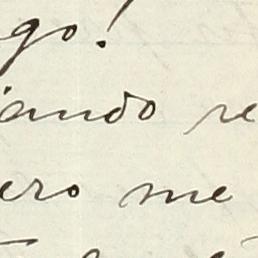 go!
ando re
ero me